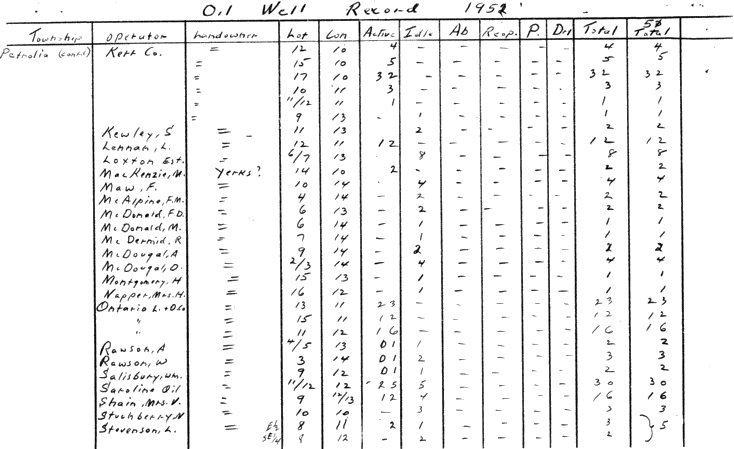 Oil Well Record 1952
Township operator Landowner Lot Con Active Idle Ab Reop. P. Drl Total 50 Total
Petrolia (cont'd) Kerr Co. = 12 10 4 - - - - - 4 4
= 15 10 5 - - - - - 5 5
= 17 10 32 - - - - - 32 32
= 10 11 3 - - - - - 3 3
= 11/12 11 1 - - - - - 1 1
= 9 13 - 1 - - - - 1 1
Kewley, S = 11 13 2 - - - - 2 2
Lennah, L. = 12 11 12 - - - - - 12 12
Loxton Est. = 6/7 13 8 - - - - 8 8
MacKenzie, M. Yerks? 14 10 2 - - - - - 2 2
Maw, F. = 10 14 - 4 - - - - 4 4
McAlpine, F.M. = 4 14 - 2 - - - - 2 2
McDonald, F.D. = 6 13 - 2 - - - - 2 2
McDonald, M. = 6 14 - 1 - - - - 1 1
McDermid, R = 7 14 - 1 - - - - 1 1
McDougal, A = 9 14 - 2 - - - - 2 2
McDougal, D. = 2/3 14 - 4 - - - - 4 4
Montgomery, H = 15 13 - 1 - - - - 1 1
Napper, Mrs. H. = 16 12 - 1 - - - - 1 1
Ontario L. + = 13 11 23 - - - - - 23 23
" = 15 11 12 - - - - - 12 12
" = 11 12 16 - - - - - 16 16
Rawson, A = 4/5 13 01 1 - - - - 2 2
Rawson, W = 3 14 01 2 - - - - 3 3
Salisbury, Wm. = 9 12 01 1 - - - - 2 2
Saroline Oil = 11/12 12 25 5 - - - - 30 30
Shain, Mrs. V. = 9 12/13 12 4 - - - - 16 16
Stuchberry, N = 10 10 - 3 - - - - 3 3
Stevenson, L. = E½ 8 11 2 1 - - - - 3 5
SE/4 8 12 - 2 - - - - 2